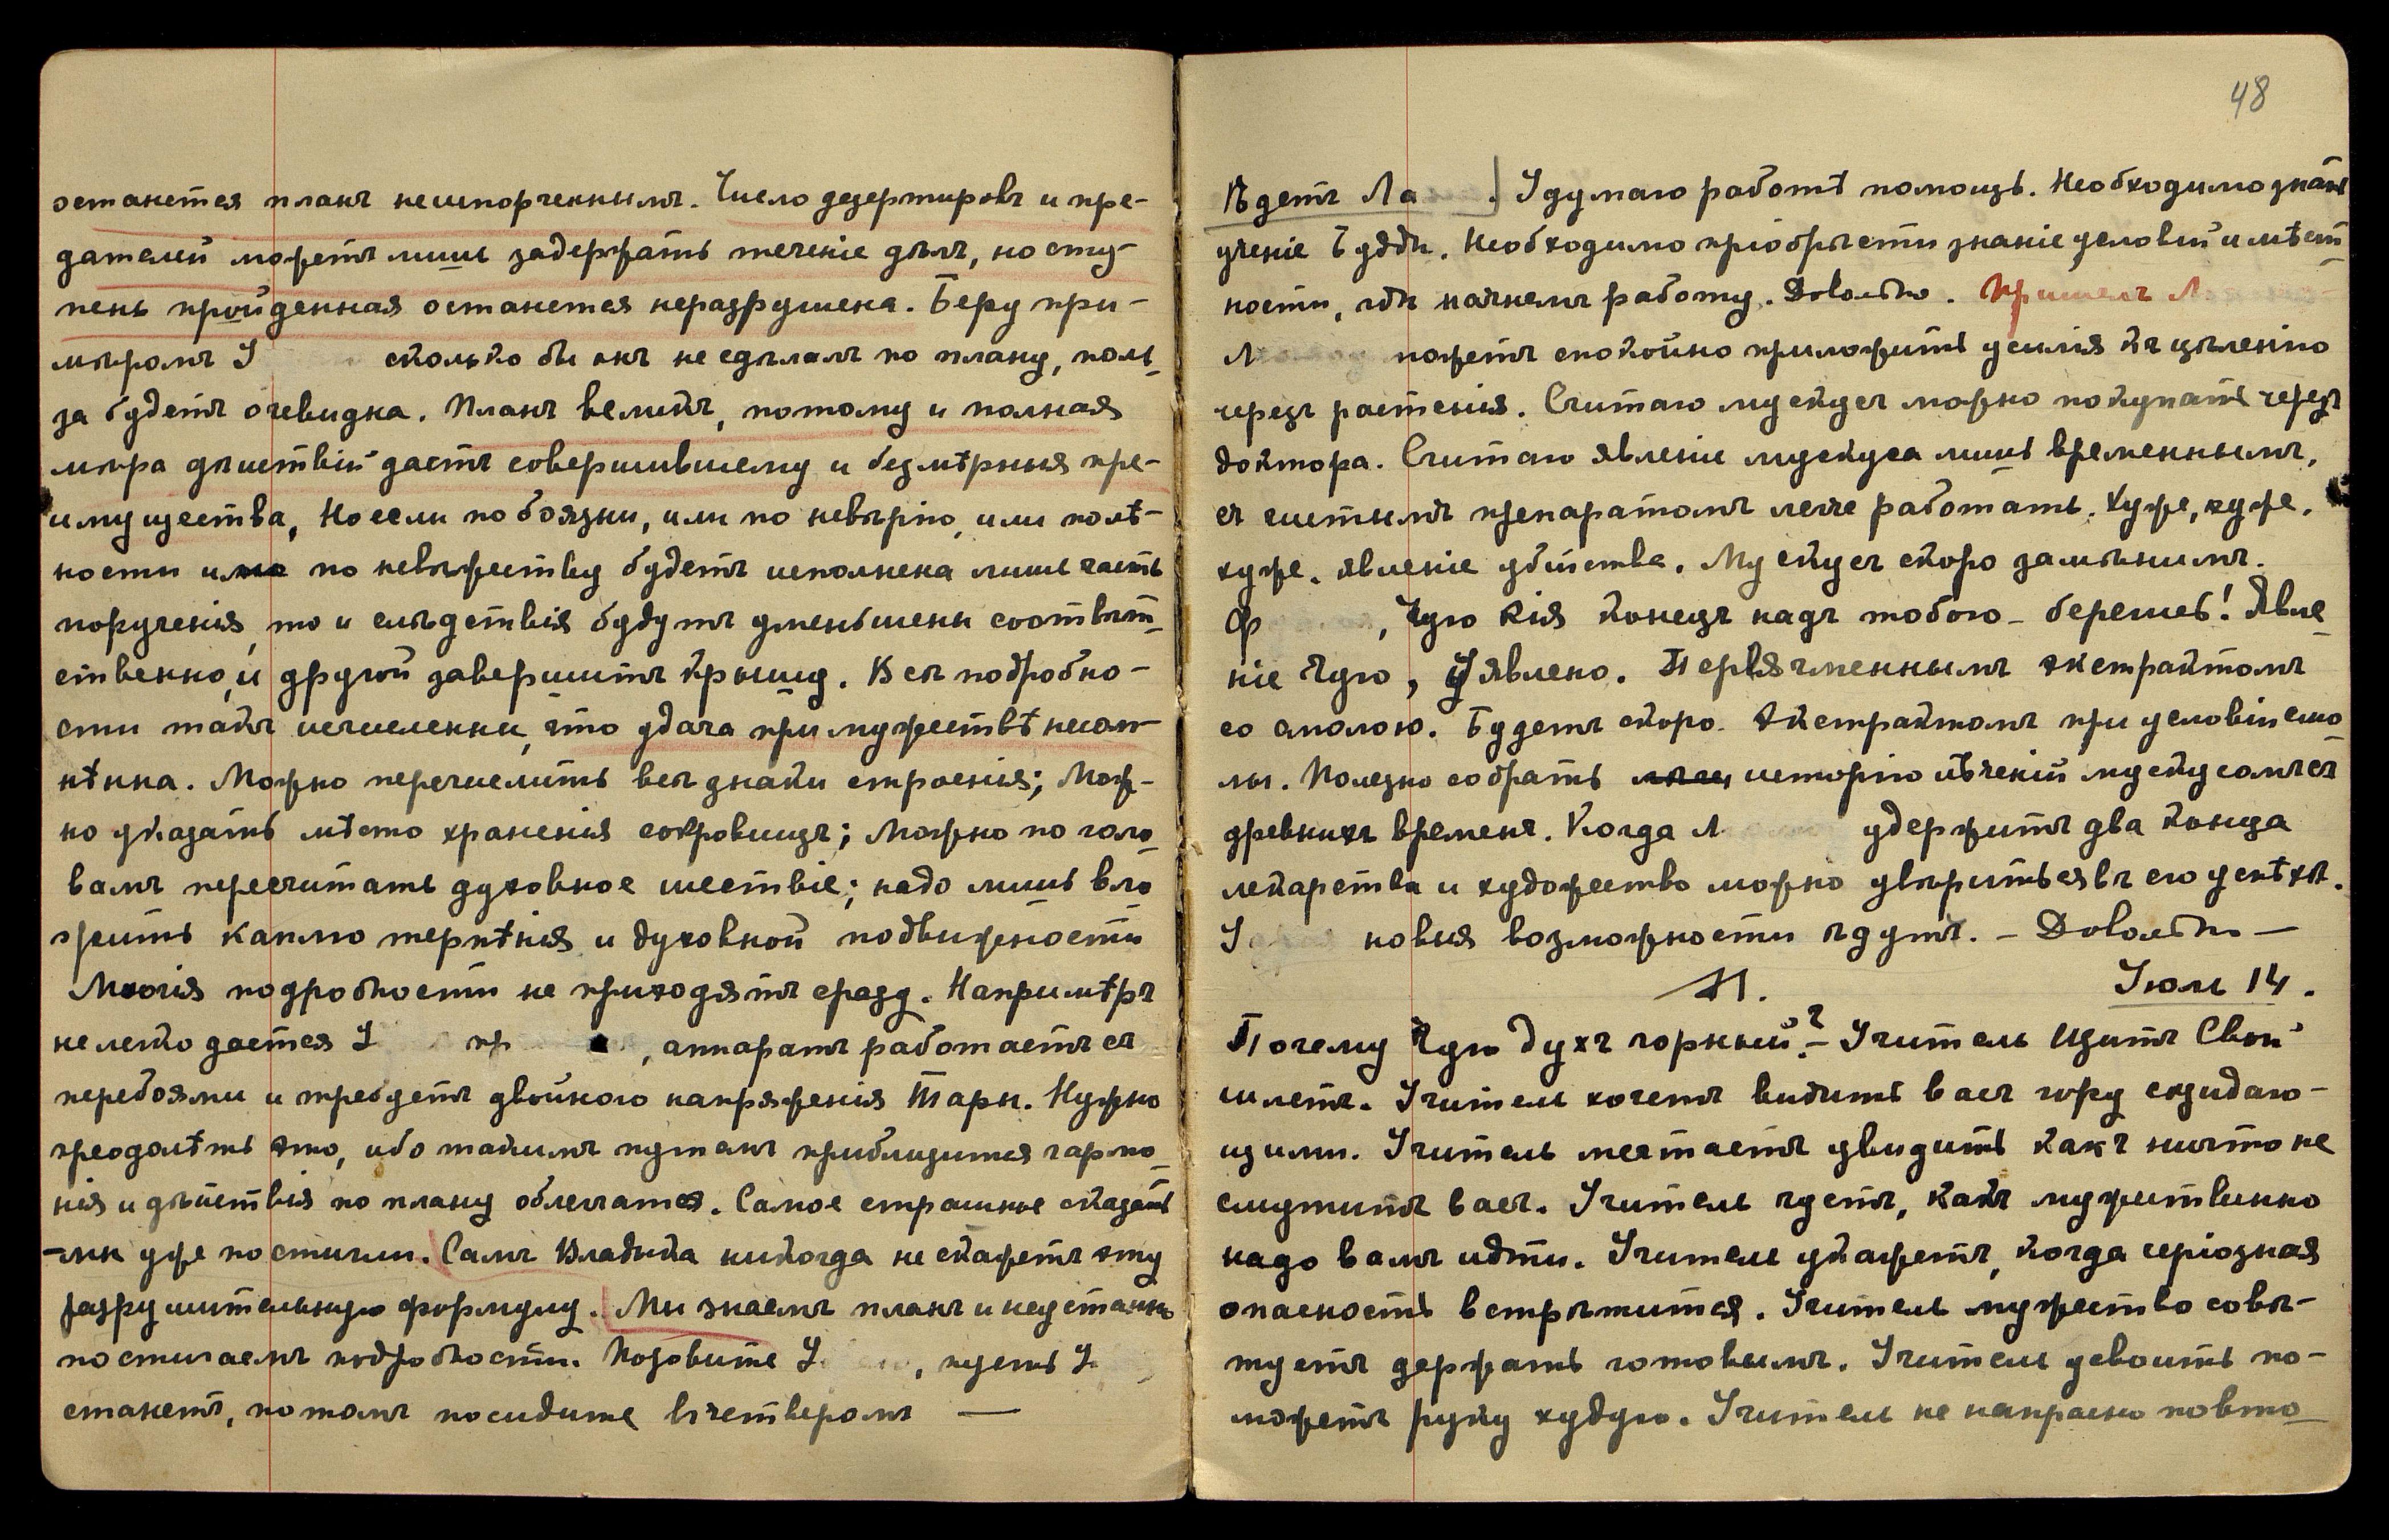 останется планъ неиспорченнымъ. Число дезертировъ и пре-
дателей можетъ лишь задержать теченіе дѣлъ, но сту-
пень пройденная останется неразрушена. Беру при-
мѣромъ У сколько бы онъ не сдѣлалъ по плану, поль-
за будетъ очевидна. Планъ великъ, потому и полная
мѣра дѣйствій дастъ совершившему и безмѣрныя пре-
имущества, Но если по боязни, или по невѣрію, или полѣ-
ности или по невѣжеству будетъ исполнена лишь часть
порученія, то и слѣдствія будутъ уменьшены соотвѣт-
ственно, и другой завершитъ крышу. Всѣ подробно-
сти такъ исчислены, что удача при мужествѣ неот-
мѣнна. Можно перечислить всѣ знаки строенія; Мож-
но указать мѣсто храненія сокровищъ; Можно по голо-
вамъ пересчитать духовное шествіе; надо лишь вло-
жить каплю терпѣнія и духовной подвижности
Многія подробности не приходятъ сразу. Напримѣръ
не легко дается У пр , аппаратъ работаетъ съ
перебоями и требуетъ двойного напряженія Тары. Нужно
преодолѣть это, ибо такимъ путемъ приблизится гармо-
нія и дѣйствія по плану облегчатся. Самое страшное сказать
-мы уже постигли. Самъ Владыка никогда не скажетъ эту
разрушительную формулу. Мы знаемъ планъ и неустанно
постигаемъ подробности. Позовите У , пусть У
станетъ, потомъ посидите вчетверомъ —
48
Ѣдетъ Ла . Удумаю работѣ помощь. Необходимо знать
ученіе Будды. Необходимо пріобрѣсти знаніе условій и мѣст-
ности, гдѣ начнемъ работу. Довольно. Пришелъ Л
Л можетъ спокойно приложить усилія къ цѣленію
черезъ растенія. Считаю мускусъ можно покупать черезъ
доктора. Считаю явленіе мускуса лишь временнымъ,
съ чистымъ препаратомъ легче работать. Хуже, хуже.
хуже. явленіе убійства. Мускусъ скоро замѣнимъ.
Ф , Чую Кія конецъ надъ тобою - берешь! Явле-
ніе Чую, Уявлено. Первячменнымъ экстрактомъ
со смолою. Будетъ скоро. Экстрактомъ при условіи смо-
лы. Полезно собрать исторію лѣченій мускусомъ съ
древнихъ временъ. Когда Л удержитъ два конца
лекарства и художество можно увѣриться въ его успѣхѣ.
У новыя возможности ждутъ. - Довольно —
М. Іюль 14.
Почему Чую духъ горный? - Учитель Щитъ Свой
шлетъ. Учитель хочетъ видить васъ гору скидаю-
щими. Учитель мечтаетъ увидить какъ ничто не
смутитъ васъ. Учитель чуетъ, какъ мужественно
надо вамъ идти. Учитель укажетъ, когда серіозная
опасность встрѣтится. Учитель мужество совѣ-
туетъ держать готовымъ. Учитель удвоить по-
можетъ руку худую. Учитель не напрасно повто-